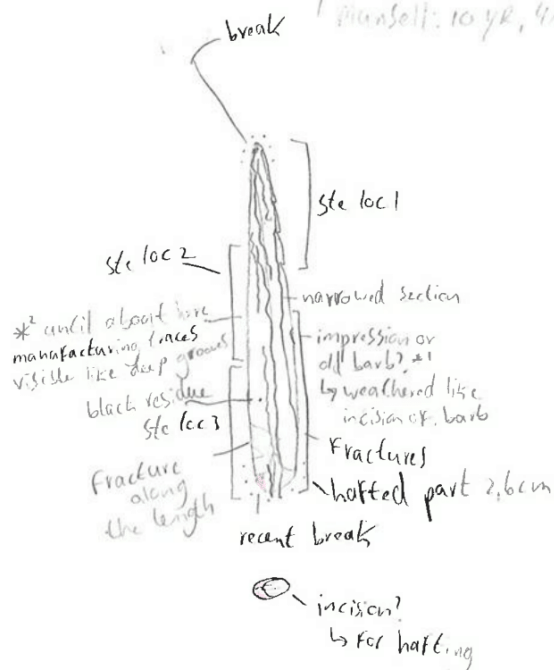 Munsell: 10 YR, 4
break
ste loc 1
ste loc 2
narrowed section
*² until about here
manufacturing traces
visible like deep grooves
impression or
old barb? *1
↳ weathered like
incision of barb
black residue
ste loc 3
Fractures
Fracture
along
the length
hafted part 2,6cm
recent break
incision?
↳ For hafting